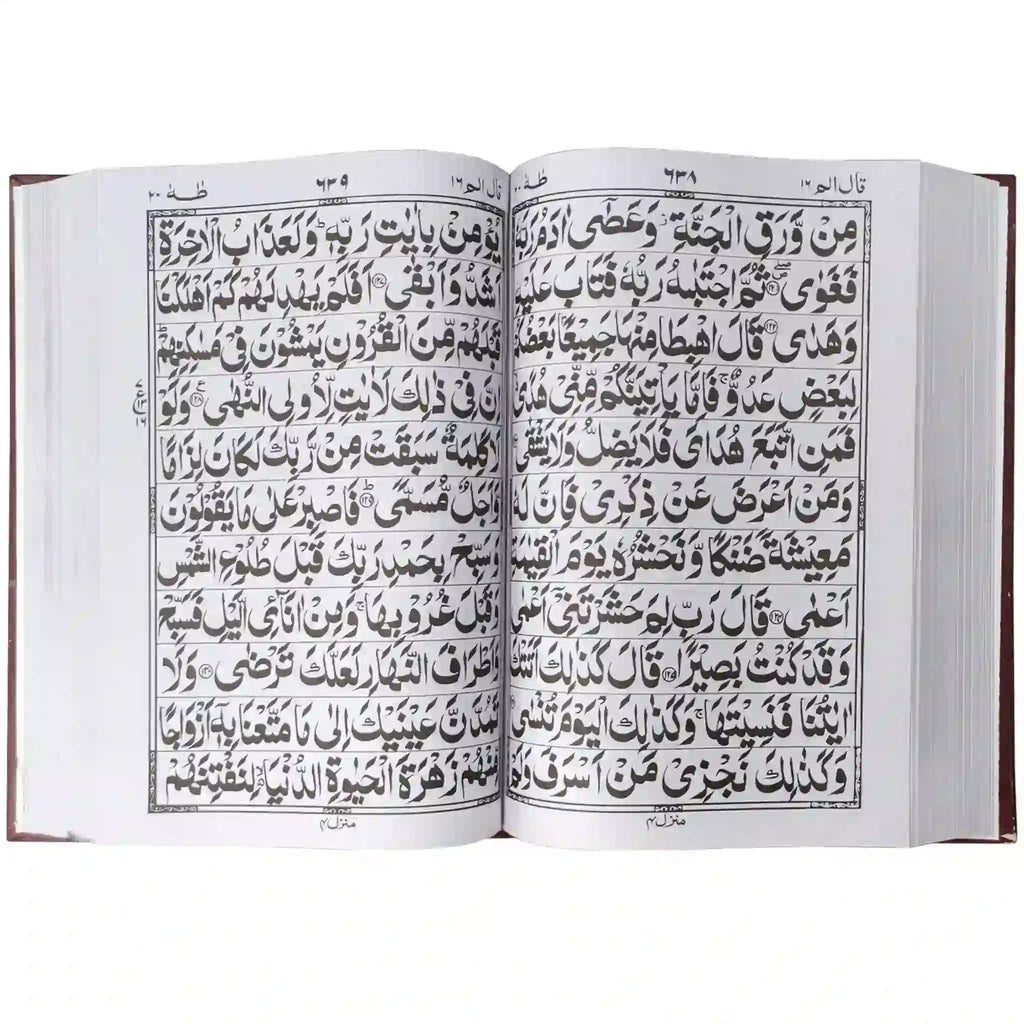 قال الم ١٦
٦٣٨
طٰهٰ ٢٠
مِنْ وَّرَقِ الْجَنَّةِ ز وَعَصٰۤى اٰدَمُ رَبَّهٗ
فَغَوٰى ﴿۱۲۱﴾ ثُمَّ اجْتَبٰىهُ رَبُّهٗ فَتَابَ عَلَيْهِ
وَهَدٰى ﴿۱۲۲﴾ قَالَ اهْبِطَا مِنْهَا جَمِيْعًۢا بَعْضُكُمْ
لِبَعْضٍ عَدُوٌّ ج فَاِمَّا يَاْتِيَنَّكُمْ مِّنِّيْ هُدًى
فَمَنِ اتَّبَعَ هُدَايَ فَلَا يَضِلُّ وَلَا يَشْقٰى
وَمَنْ اَعْرَضَ عَنْ ذِكْرِيْ فَاِنَّ لَهٗ
مَعِيْشَةً ضَنْكًا وَّنَحْشُرُهٗ يَوْمَ الْقِيٰمَةِ
اَعْمٰى ﴿۱۲۴﴾ قَالَ رَبِّ لِمَ حَشَرْتَنِيْۤ اَعْمٰى
وَقَدْ كُنْتُ بَصِيْرًا ﴿۱۲۵﴾ قَالَ كَذٰلِكَ اَتَتْكَ
اٰيٰتُنَا فَنَسِيْتَهَا ج وَكَذٰلِكَ الْيَوْمَ تُنْسٰى
وَكَذٰلِكَ نَجْزِيْ مَنْ اَسْرَفَ وَلَمْ
منزل ۴
قال الم ١٦
٦٣٩
طٰهٰ ٢٠
يُؤْمِنْۢ بِاٰيٰتِ رَبِّهٖ ط وَلَعَذَابُ الْاٰخِرَةِ
اَشَدُّ وَاَبْقٰى ﴿۱۲۷﴾ اَفَلَمْ يَهْدِ لَهُمْ كَمْ اَهْلَكْنَا
قَبْلَهُمْ مِّنَ الْقُرُوْنِ يَمْشُوْنَ فِيْ مَسٰكِنِهِمْ ط
اِنَّ فِيْ ذٰلِكَ لَاٰيٰتٍ لِّاُولِي النُّهٰى ﴿۱۲۸﴾ ع وَلَوْ
لَا كَلِمَةٌ سَبَقَتْ مِنْ رَّبِّكَ لَكَانَ لِزَامًا
وَّاَجَلٌ مُّسَمًّى ط ﴿۱۲۹﴾ فَاصْبِرْ عَلٰى مَا يَقُوْلُوْنَ
وَسَبِّحْ بِحَمْدِ رَبِّكَ قَبْلَ طُلُوْعِ الشَّمْسِ
وَقَبْلَ غُرُوْبِهَا ج وَمِنْ اٰنَآئِ الَّيْلِ فَسَبِّحْ
وَاَطْرَافَ النَّهَارِ لَعَلَّكَ تَرْضٰى ﴿۱۳۰﴾ وَلَا
تَمُدَّنَّ عَيْنَيْكَ اِلٰى مَا مَتَّعْنَا بِهٖۤ اَزْوَاجًا
مِّنْهُمْ زَهْرَةَ الْحَيٰوةِ الدُّنْيَا لِنَفْتِنَهُمْ
منزل ۴